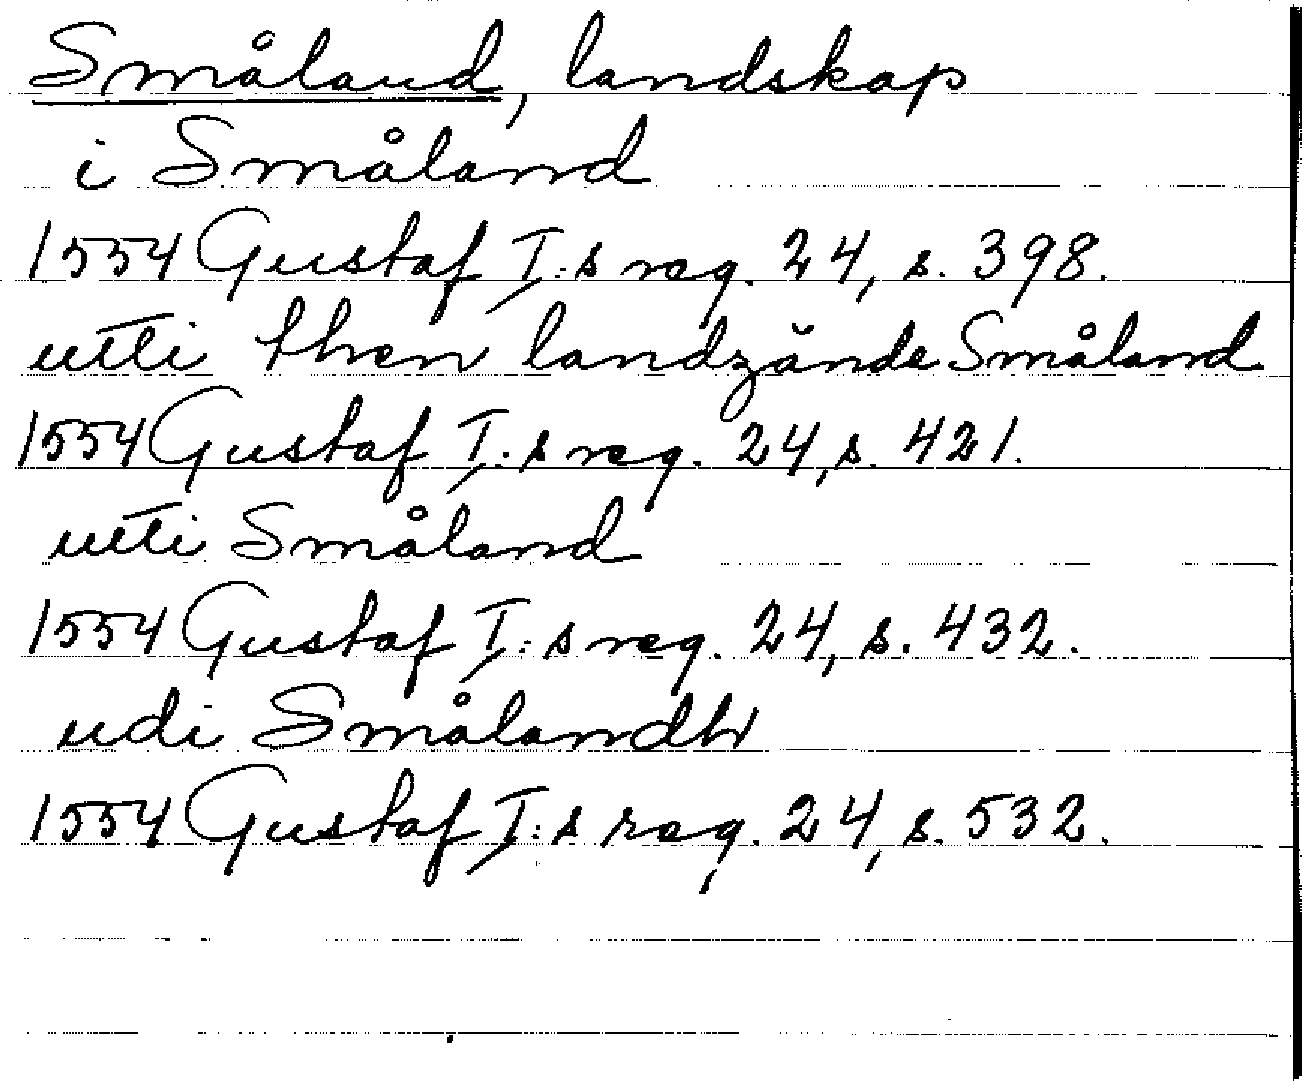 Småland, landskap
i Småland
1554 Gustaf I:s reg. 24, s. 398.
utti then landzände Småland
1554 Gustaf I:s reg. 24, s. 421.
utti Småland
1554 Gustaf I:s reg. 24, s. 432.
udi Smålandh
1554 Gustaf I:s reg. 24, s. 532.